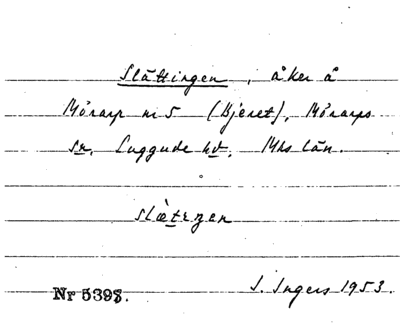 Slättingen, åker å
Mörarp nr 5 (Bjeret), Mörarps
sn. Luggude hd. Mhs län.
slæ̀tɛŋen
Nr 5398.
I. Ingers 1953.